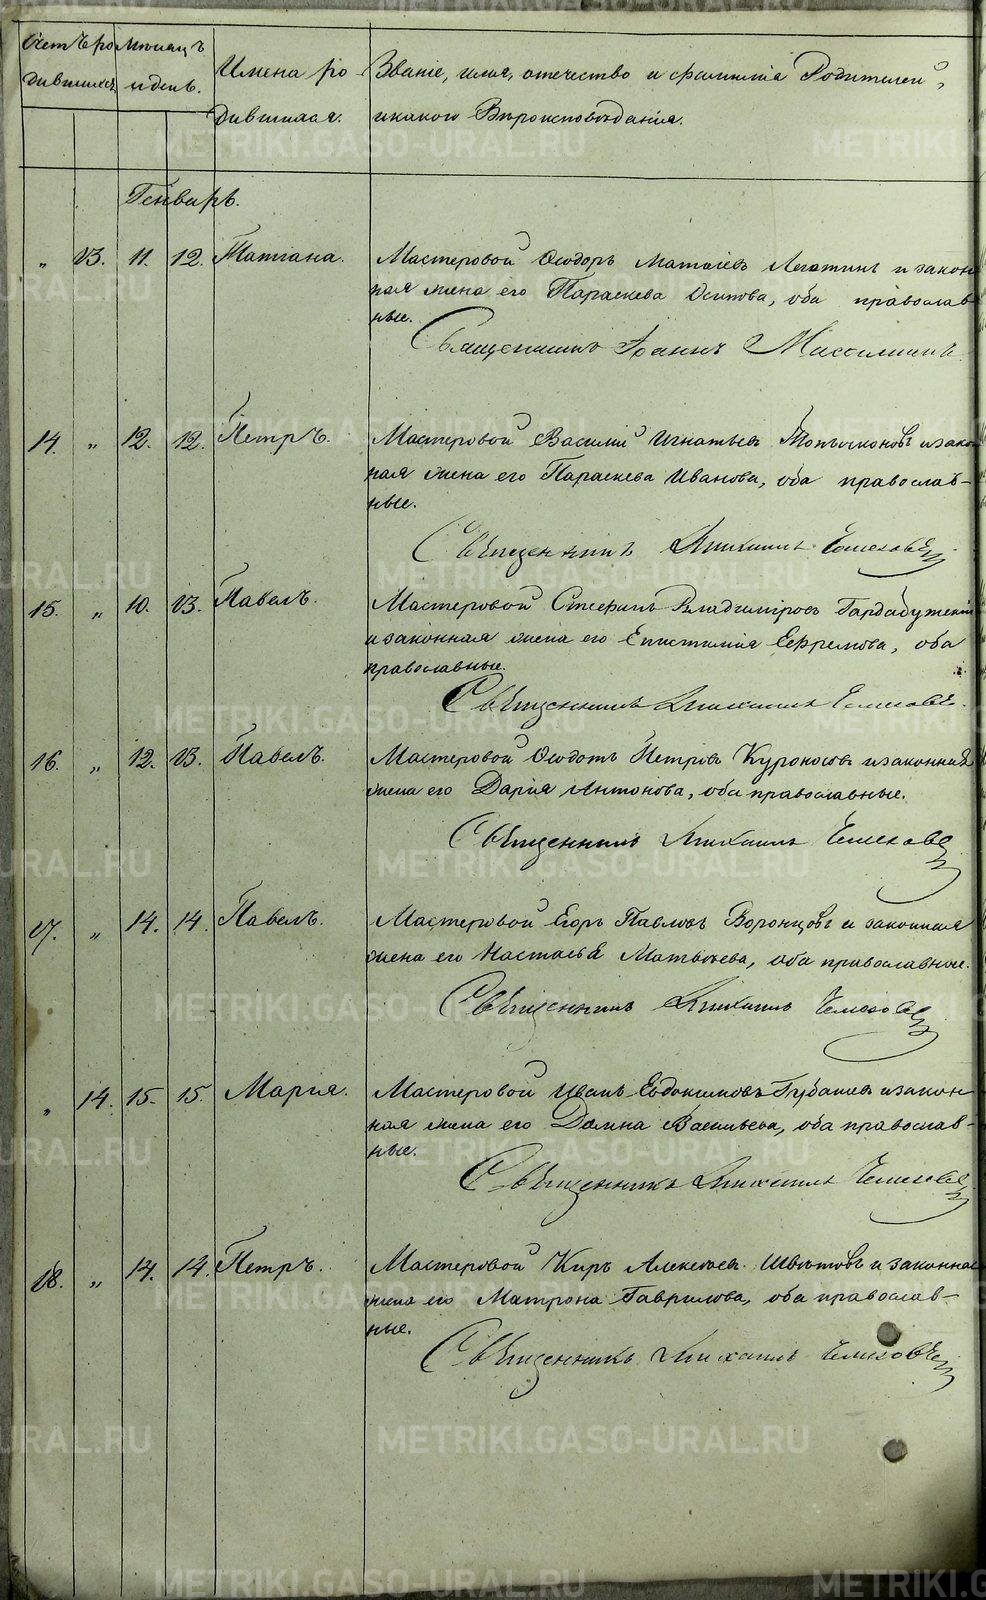 Счетъ ро
дившихся
Мѣсяцъ
и день.
Имена ро-
дившихся.
Званіе, имя, отечество и фамилія Родителей,
и какого Вѣроисповѣданія.
Генварь.
„ 13. 11. 12. Татіана. Мастеровой Ѳеодоръ Матвѣевъ и закон
ная жена его Параскева Осипова, оба православ
ные.
Священникъ Іоаннъ
14. „ 12. 12. Петръ. Мастеровой Василій Игнатьевъ и закон
ная жена его Параскева Иванова, оба православ-
ные.
Священникъ Михаилъ
15. „ 10. 13. Павелъ. Мастеровой Стефанъ Владиміровъ
и законная жена его Епистимія Ефремова, оба
православные.
Священникъ Михаилъ
16. „ 12. 13. Павелъ. Мастеровой Ѳеодотъ Петровъ Курносовъ и законная
жена его Дарія Антонова, оба православные.
Священникъ Михаилъ
17. „ 14. 14. Павелъ. Мастеровой Егоръ Павловъ Воронцовъ и законная
жена его Настасья Матвѣева, оба православные.
Священникъ Михаилъ
„ 14. 15. 15. Марія. Мастеровой Иванъ Евдокимовъ и закон
ная жена его Домна Васильева, оба православ-
ные.
Священникъ Михаилъ
18. „ 14. 14. Петръ. Мастеровой Киръ Алексѣевъ и законная
жена его Матрона Гаврилова, оба православ-
ные.
Священникъ Михаилъ
METRIKI.GASO-URAL.RU